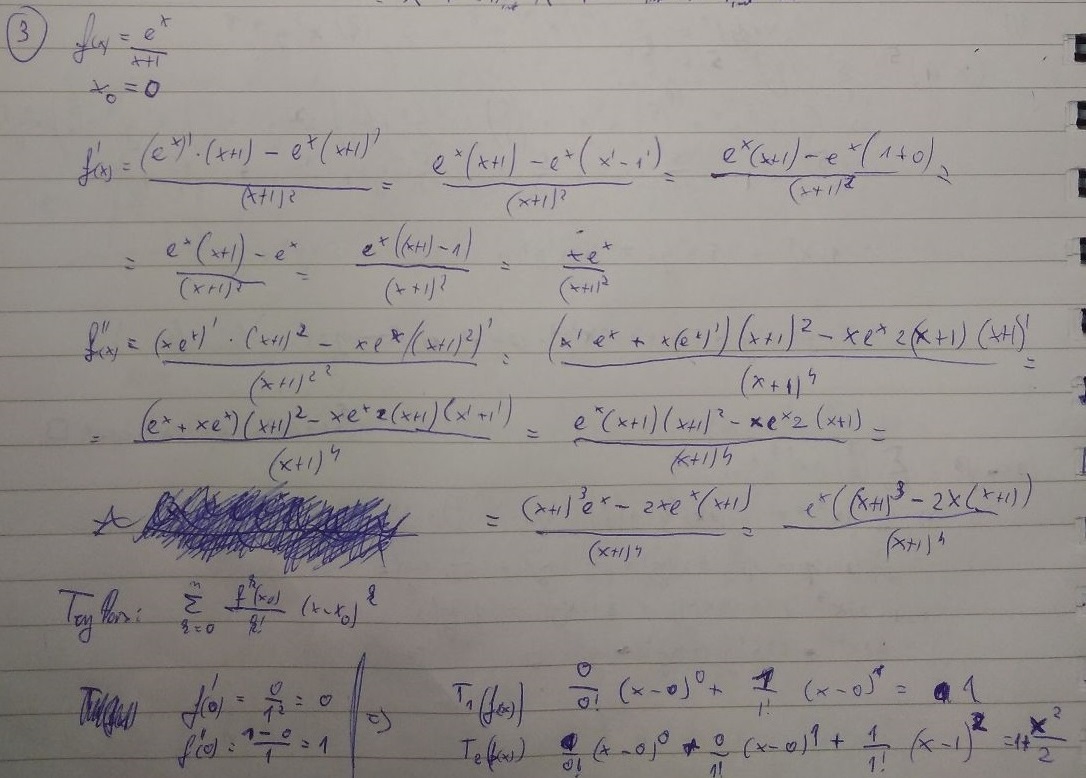 3 f(x) = e^x/(x+1)
x_0 = 0
f'(x) = ((e^x)'·(x+1) - e^x(x+1)')/(x+1)^2 = (e^x(x+1) - e^x(x'-1'))/(x+1)^2 = (e^x(x+1) - e^x(1+0))/(x+1)^2 =
= (e^x(x+1) - e^x)/(x+1)^2 = (e^x((x+1)-1))/(x+1)^2 = xe^x/(x+1)^2
f''(x) = ((xe^x)'·(x+1)^2 - xe^x((x+1)^2)')/(x+1)^2^2 = ((x'e^x + x(e^x)')(x+1)^2 - xe^x 2(x+1)(x+1)')/(x+1)^4 =
= ((e^x + xe^x)(x+1)^2 - xe^x 2(x+1)(x'+1'))/(x+1)^4 = (e^x(x+1)(x+1)^2 - xe^x 2(x+1))/(x+1)^4 =
= ((x+1)^3 e^x - 2xe^x(x+1))/(x+1)^4 = (e^x((x+1)^3 - 2x(x+1)))/(x+1)^4
∑_{k=0}^{n} f^k(x_0)/k! (x-x_0)^k
f'(0) = 0/1^2 = 0 ⇒ T_1(f(x)) 0/0! (x-0)^0 + 1/1! (x-0)^1 = 1
f''(0) = (1-0)/1 = 1 T_2(f(x)) /0! (x-0)^0 + 0/1! (x-0)^1 + 1/1! (x-1)^2 = 1+x^2/2